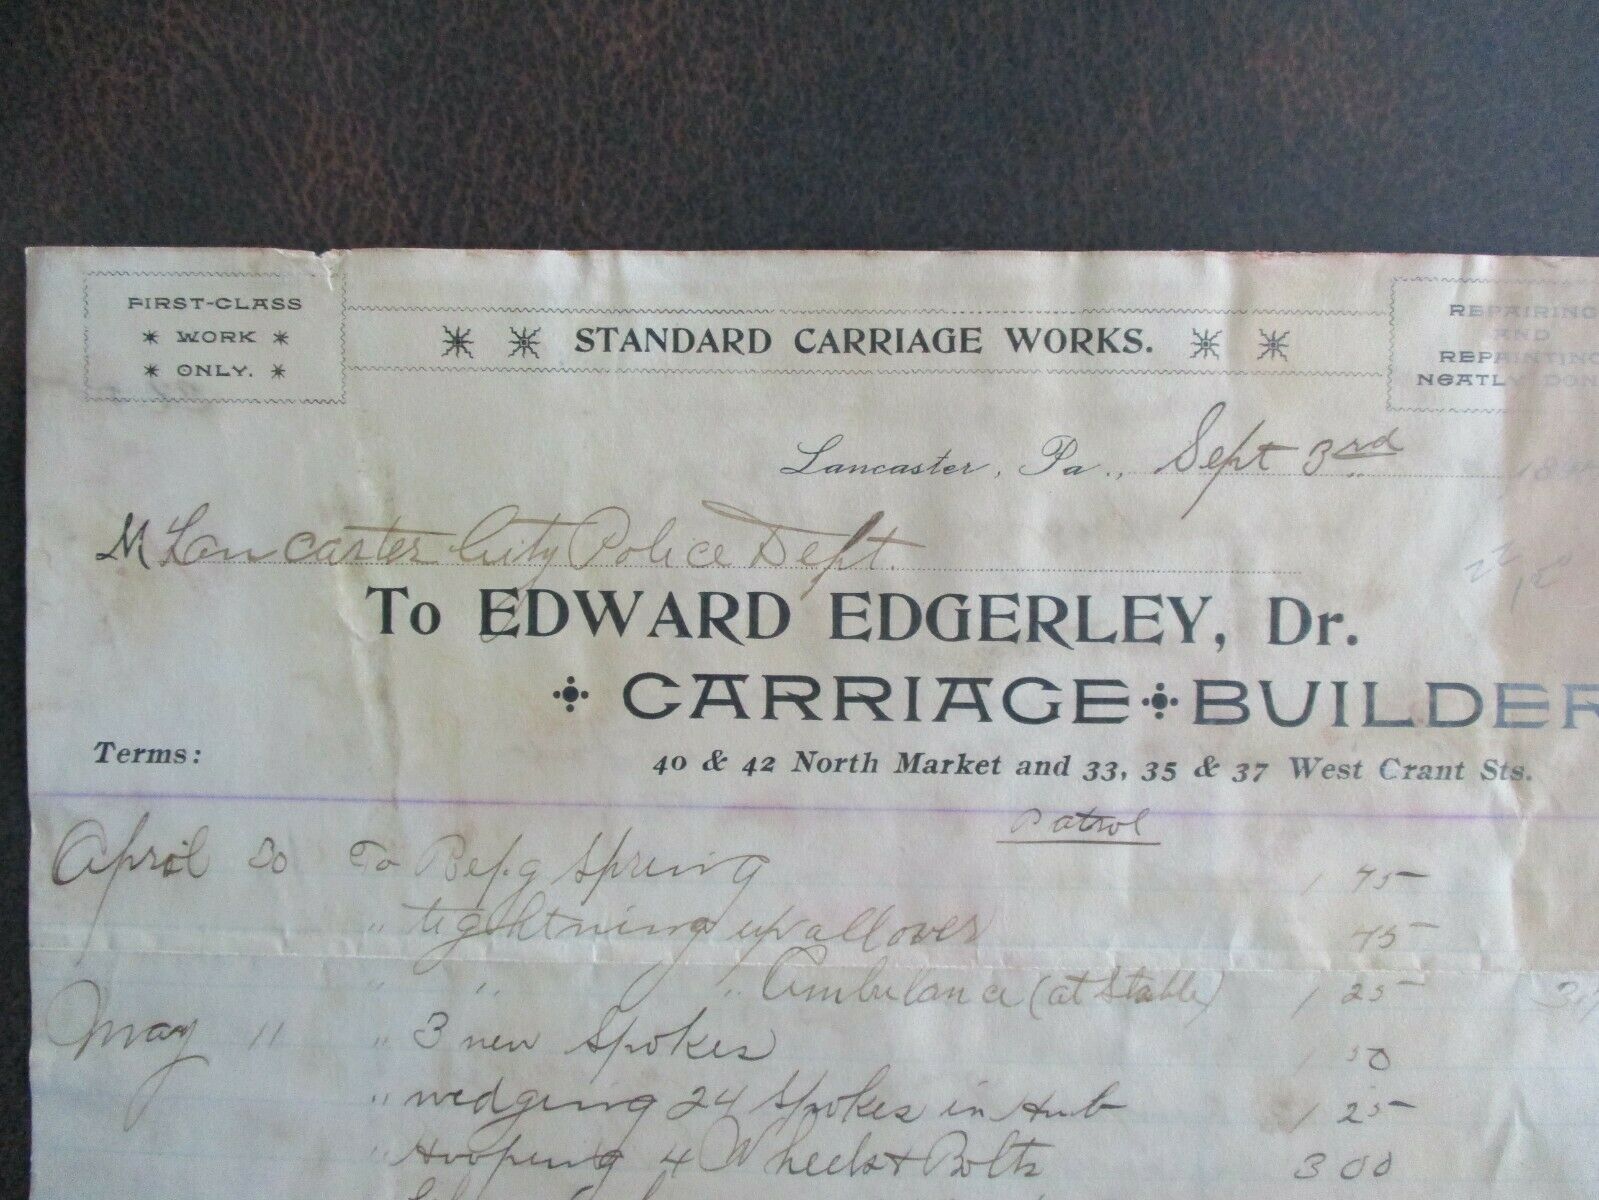 FIRST-CLASS
WORK
ONLY.
STANDARD CARRIAGE WORKS.
REPAIRING
AND
REPAINTING
NEATLY DON
Lancaster, Pa., Sept 3rd
M Lancaster City Police Dept.
To EDWARD EDGERLEY, Dr.
CARRIAGE BUILDER
Terms:
40 & 42 North Market and 33, 35 & 37 West Grant Sts.
Patrol
April 30 To Rep.g Spring 1 75
" tightning up all over 75
" " " Ambulance (at Stable) 1 25
May 11 " 3 new Spokes 1 50
" wedging 24 Spokes in Hub 1 25
" Hooping 4 Wheels & Bolts 3 00